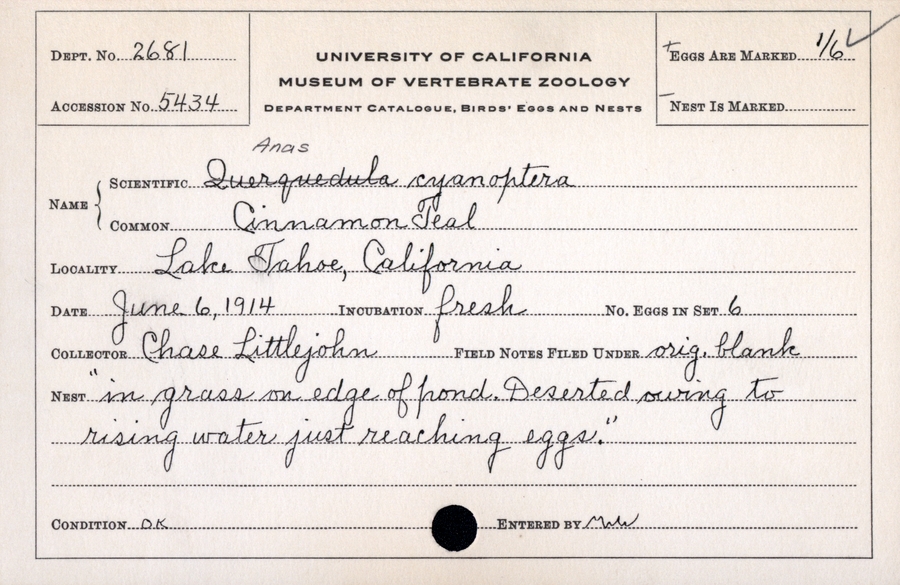 Dept. No. 2681
Accession No. 5434
University of California
Museum of Vertebrate Zoology
Department Catalogue, Birds' Eggs and Nests
+Eggs Are Marked 1/6 ✓
-Nest Is Marked
Anas
Name { Scientific Querquedula cyanoptera
Common Cinnamon Teal
Locality Lake Tahoe, California
Date June 6, 1914 Incubation fresh No. Eggs in Set 6
Collector Chase Littlejohn Field Notes Filed Under orig. blank
Nest "in grass on edge of pond. Deserted owing to
rising water just reaching eggs."
Condition OK Entered by